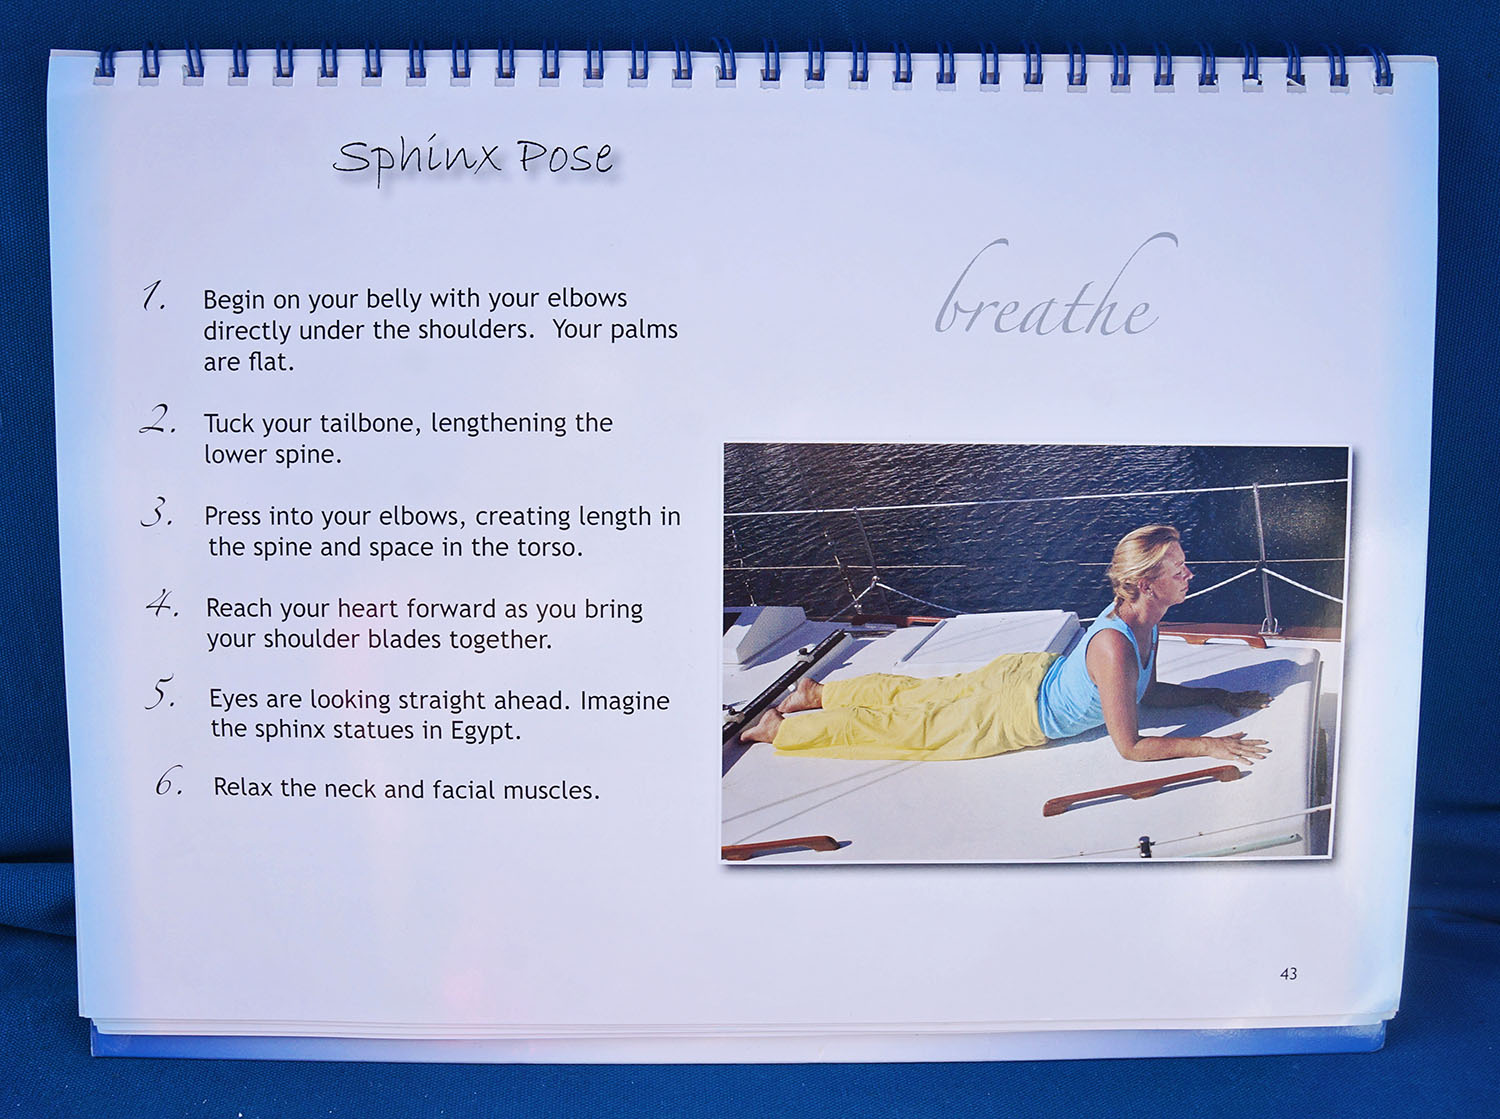 Sphinx Pose
breathe
1. Begin on your belly with your elbows
directly under the shoulders.  Your palms
are flat.
2. Tuck your tailbone, lengthening the
lower spine.
3. Press into your elbows, creating length in
the spine and space in the torso.
4. Reach your heart forward as you bring
your shoulder blades together.
5. Eyes are looking straight ahead. Imagine
the sphinx statues in Egypt.
6. Relax the neck and facial muscles.
43